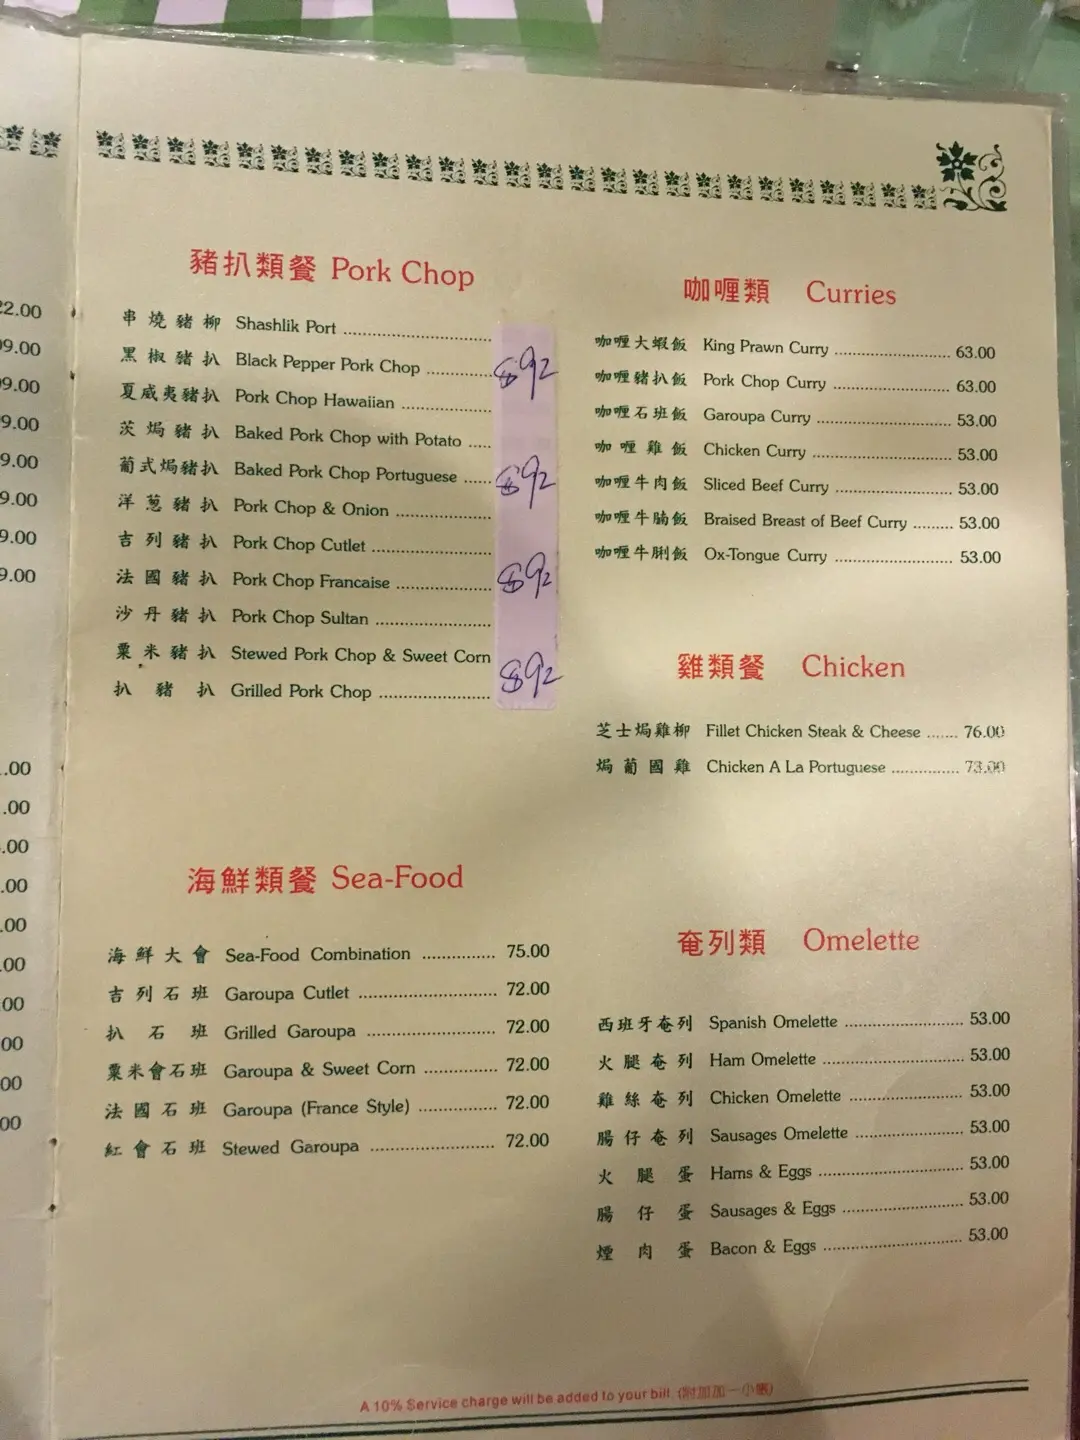 22.00
99.00
99.00
9.00
9.00
9.00
9.00
9.00
.00
.00
.00
.00
.00
.00
00
00
00
00
豬扒類餐 Pork Chop
串燒豬柳 Shashlik Port
黑椒豬扒 Black Pepper Pork Chop $92
夏威夷豬扒 Pork Chop Hawaiian
茨焗豬扒 Baked Pork Chop with Potato
葡式焗豬扒 Baked Pork Chop Portuguese $92
洋葱豬扒 Pork Chop & Onion
吉列豬扒 Pork Chop Cutlet
法國豬扒 Pork Chop Francaise $92
沙丹豬扒 Pork Chop Sultan
粟米豬扒 Stewed Pork Chop & Sweet Corn $92
扒豬扒 Grilled Pork Chop
海鮮類餐 Sea-Food
海鮮大會 Sea-Food Combination 75.00
吉列石班 Garoupa Cutlet 72.00
扒石班 Grilled Garoupa 72.00
粟米會石班 Garoupa & Sweet Corn 72.00
法國石班 Garoupa (France Style) 72.00
紅會石班 Stewed Garoupa 72.00
咖喱類 Curries
咖喱大蝦飯 King Prawn Curry 63.00
咖喱豬扒飯 Pork Chop Curry 63.00
咖喱石班飯 Garoupa Curry 53.00
咖喱雞飯 Chicken Curry 53.00
咖喱牛肉飯 Sliced Beef Curry 53.00
咖喱牛腩飯 Braised Breast of Beef Curry 53.00
咖喱牛脷飯 Ox-Tongue Curry 53.00
雞類餐 Chicken
芝士焗雞柳 Fillet Chicken Steak & Cheese 76.00
焗葡國雞 Chicken A La Portuguese 73.00
奄列類 Omelette
西班牙奄列 Spanish Omelette 53.00
火腿奄列 Ham Omelette 53.00
雞絲奄列 Chicken Omelette 53.00
腸仔奄列 Sausages Omelette 53.00
火腿蛋 Hams & Eggs 53.00
腸仔蛋 Sausages & Eggs 53.00
煙肉蛋 Bacon & Eggs 53.00
A 10% Service charge will be added to your bill. (附加加一小賬)